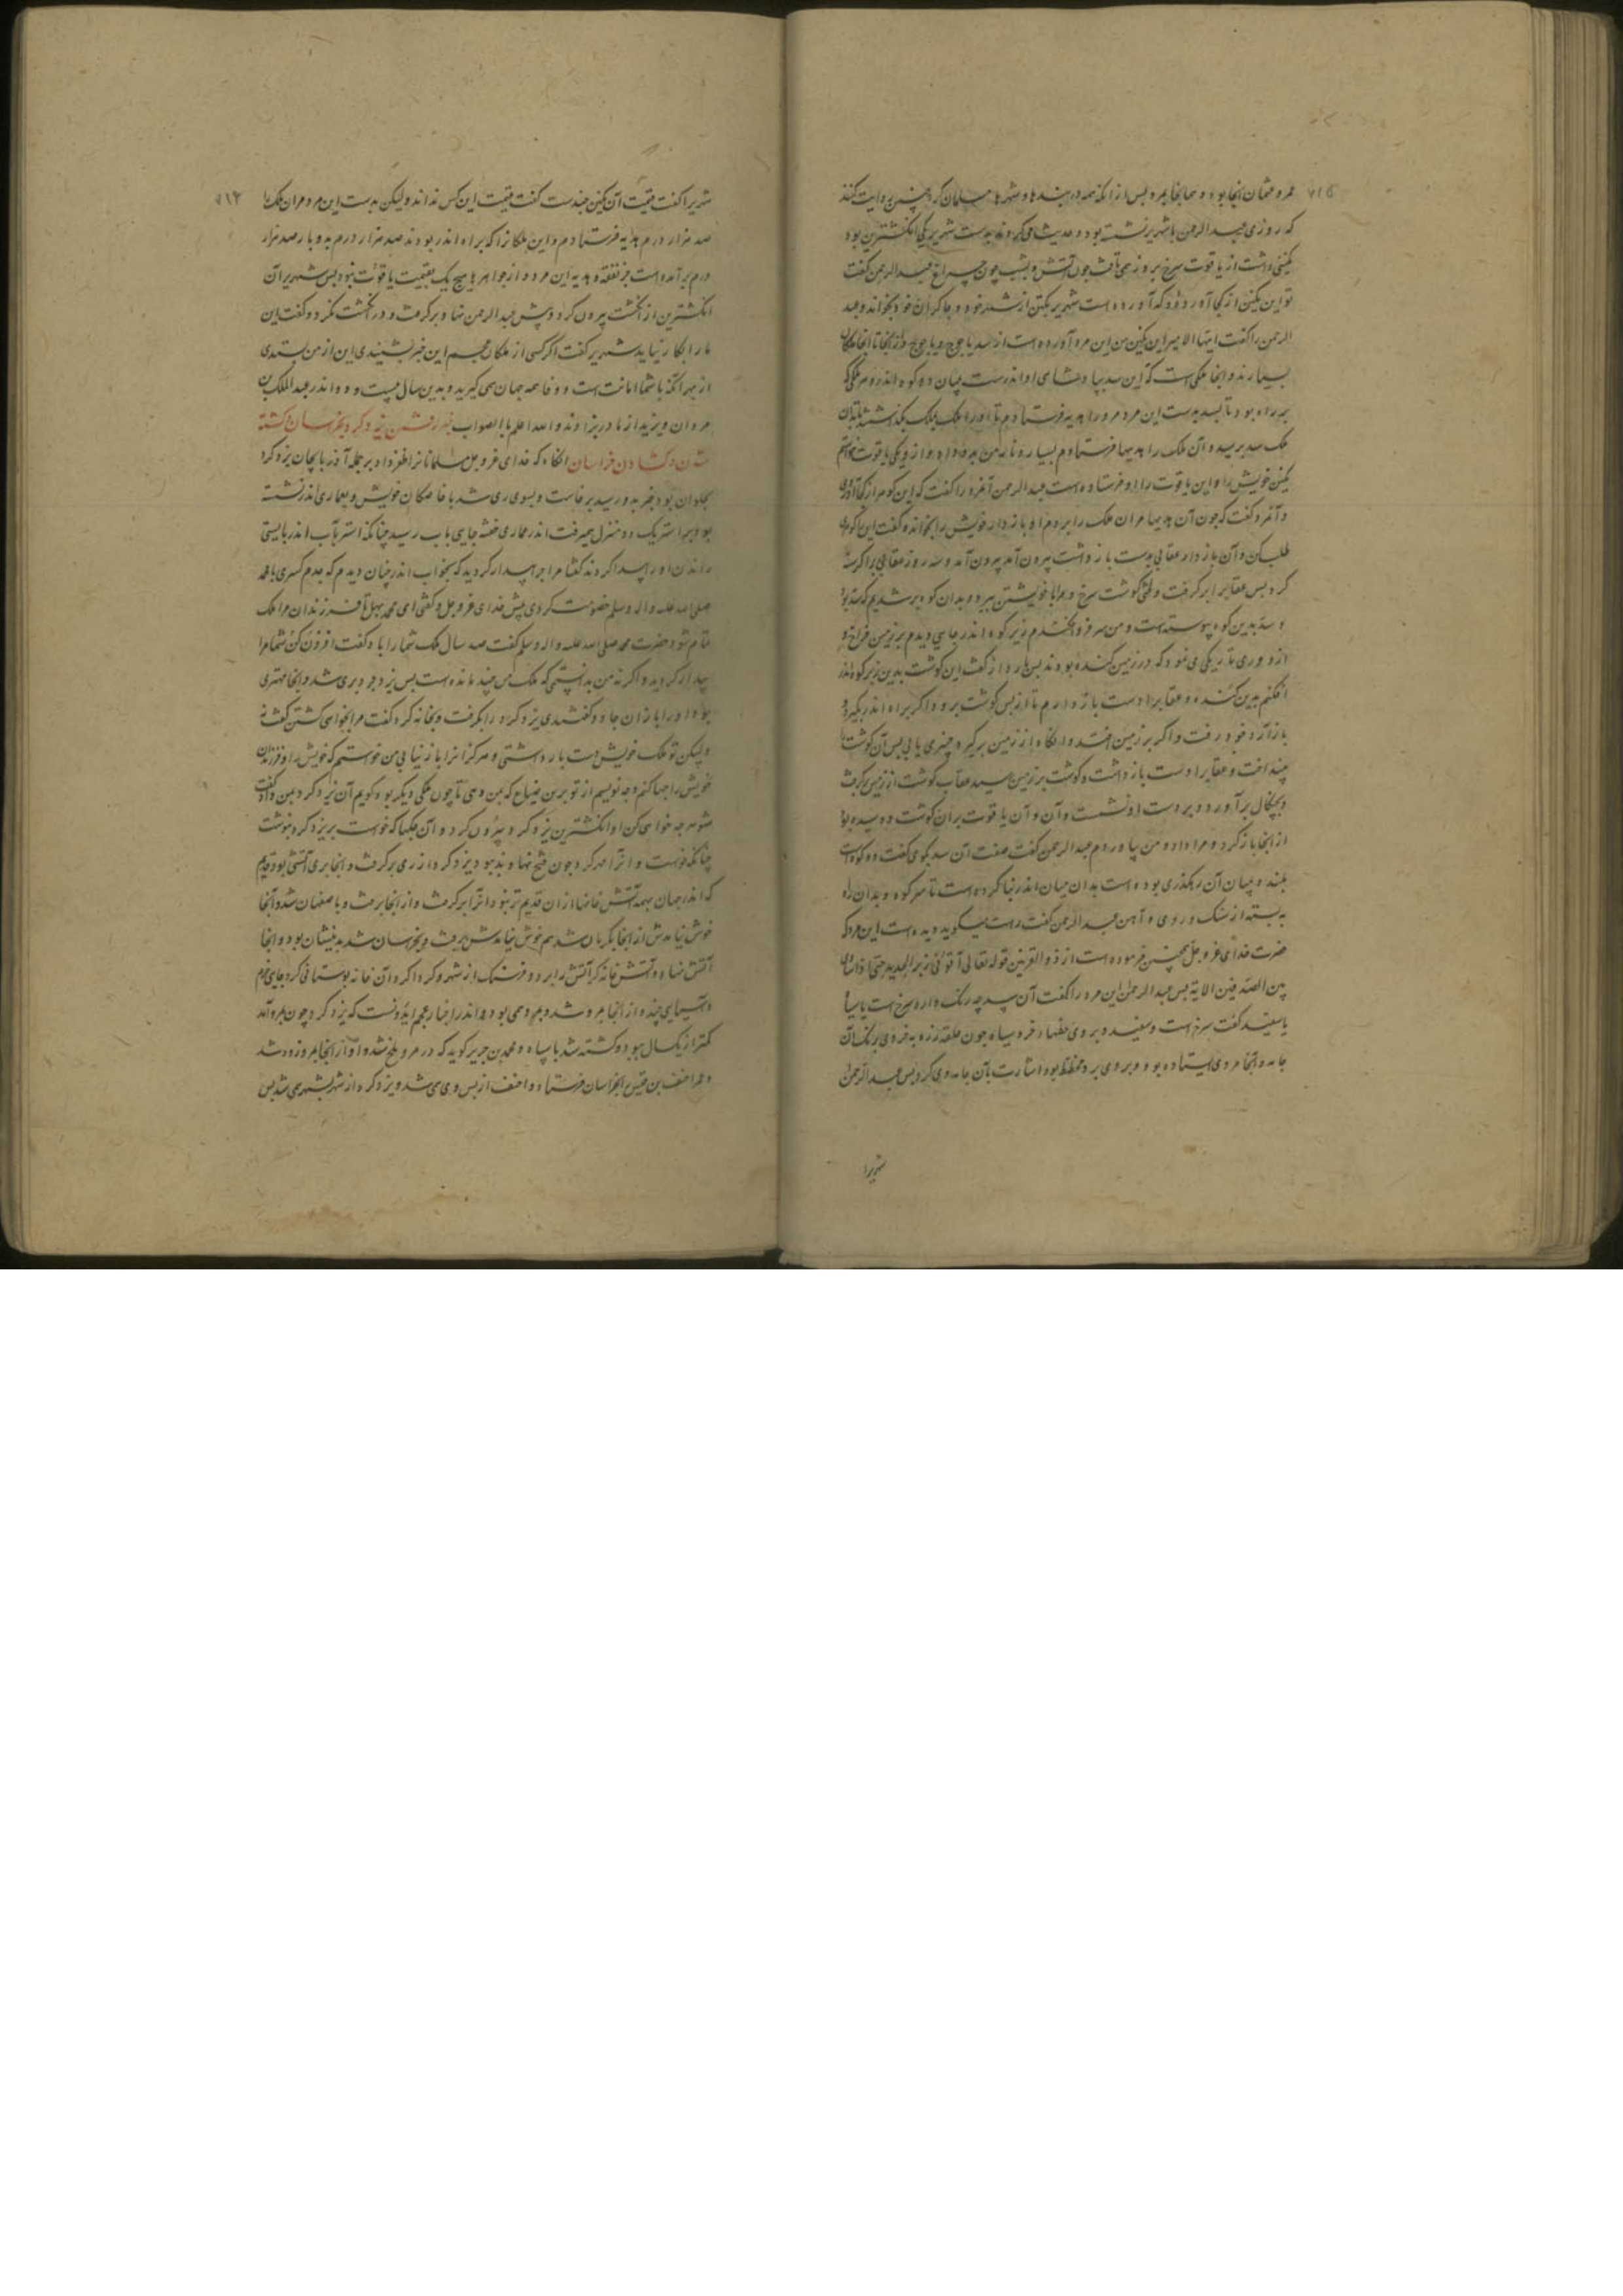 عمر و عثمان آنجا بود و هم آنجا بمرد پس از آنکه همه دربندها و شهرها مسلمان کرد چنین روایت کنند
که روزی عبدالرحمن با شهریر نشسته بود و حدیث همی کردند بدست شهریر یکی انگشترین بود
نگینی داشت از یاقوت سرخ بروز همی تافت چون آتش و بشب چون چراغ عبدالرحمن گفت
تو این نگین از کجا آوردی که آورده است شهریر یکتن از شهر خود و چاکران خود بخواند و عبد
الرحمن را گفت ایها الامیر این نگین من این مرد آورده است از سد یاجوج و ماجوج و از اینجا تا آنجا ملکان
بسیارند و آنجا ملکی است که این سد بپادشاهی او اندرست میان دو کوه اندر و هر ملکی که
بر راه بود تا بسد بدست این مرد مر او را هدیه فرستادم تا او را ملک بملک بگذاشتند تا بدان
ملک سد برسید و آن ملک را هدیها فرستادم بسیار و نامه من بدو داد و از وی یکی یاقوت خواستم
نگین خویش را و این یاقوت را او فرستاده است عبدالرحمن آن مرد را گفت که این گوهر از کجا آوردی
و آن مرد گفت که چون آن هدیها مر آن ملک را بردم او بازدار خویش را بخواند و گفت این را گوهری
طلب کن و آن بازدار عقابی بدست باز داشت بیرون آمد بیرون آمد و سه روز عقاب را گرسنه
کرد پس عقاب را برگرفت و لختی گوشت سرخ و مرا با خویشتن ببرد و بدان کوه بر شدیم که سد بود
و سد بدین کوه پیوسته است و من سر فرو افکندم زیر کوه اندر جایی دیدم بر زمین فراخ و
از دوری تاریکی می نمود که در زمین کنده بودند پس بازدار گفت این گوشت بدین زیر کوه اندر
افکنم بدین کنده و عقاب را دست باز دارم تا از پس گوشت برود اگر براه اندر بگیرد و
باز آرد خود رفت و اگر بر زمین افتد و آنگاه از زمین برگیرد چیزی یابی پس آن گوشت را
بینداخت و عقاب را دست باز داشت و گوشت بر زمین رسید عقاب گوشت از زمین برگرفت
و بچنگال برآورد و بر دست او نشست و آن یاقوت بر آن گوشت دوسیده بود
از آنجا باز کرد و مرا داد و من بیاوردم عبدالرحمن گفت صفت آن سد بگوی گفت دو کوه است
بلند و میان آن رهگذری بوده است بدان میان اندر بنا کرده است تا سر کوه و بدان راه
به بسته از سنگ و روی و آهن عبدالرحمن گفت راست میگوید دیده است این مرد که
حضرت خدای عز و جل همچنین فرموده است از ذو القرنین قوله تعالی آتونی زبر الحدید حتی اذا ساوی
بین الصدفین الایة پس عبدالرحمن این مرد را گفت آن سد چه رنگ دارد سرخ است یا سیاه
یا سفید گفت سرخ است و سفید و بروی خطها فرو سیاه چون حلقه زره فروی برنگ آن
جامه و آنجا مردی ایستاده بود و بروی برد مخطط بود اشارت بآن جامه وی کرد پس عبدالرحمن
شهریر
شهریر را گفت قیمت آن نگین چندست گفت قیمت این کس نداند ولیکن بدست این مرد مر آن ملک را
صد هزار درم هدیه فرستادم و این ملکانرا که براه اندر بودند صد هزار درم بدو بار صد هزار
درم برآمده است جز نفقه و هدیه این مرد و از جواهرها هیچ یک بقیمت یاقوت نبود پس شهریر آن
انگشترین از انگشت بیرون کرد و پیش عبدالرحمن نهاد و برگرفت و در انگشت نکرد و گفت این
ما را بکار نیاید شهریر گفت اگر کسی از ملکان عجم این خبر بشنیدی این از من بستدی
از بهر آنکه با شما امانت است و وفا همه جهان همی گیرید و بدین سال بیست و دو اندر عبدالملک بن
مروان و یزید از مادر بزادند و الله اعلم بالصواب خبر رفتن یزدگرد بخراسان و کشته
شدن و گشادن خراسان آنگاه که خدای عز و جل مسلمانانرا ظفر داد بر جمله آذربایجان یزدگرد
بحلوان بود خبر بدو رسید برخاست و بسوی ری شد با خاصگان خویش و بعماری اندر نشسته
بود بر استر یک دو منزل میرفت اندر عماری خفته جایی بآب رسید چنانکه استر بآب اندر بایستی
راندن او را بیدار کردند گفتا مرا چرا بیدار کردید که بخواب اندر چنان دیدم که جدم کسری با محمد
صلی الله علیه و اله و سلم خصومت کردی پیش خدای عز و جل و گفتی ای محمد بهل تا فرزندان مرا ملک
تمام شود حضرت محمد صلی الله علیه و اله و سلم گفت صد سال ملک شما را باد گفت افزون کن شما مرا
بیدار کردید و اگر نه من بدانستمی که ملک من چند مانده است پس یزدجرد بری شد و آنجا مهتری
بود او را ابازان جادو گفتندی یزدگرد را بگرفت و بخانه کرد گفت مرا بخواهی کشتن گفت نه
ولیکن تو ملک خویش دست باز داشتی و هرگز آنرا باز نیابی من خواستم که خویش را و فرزندان
خویش را چها کنم و چه نویسم از تو برین ضیاع که بمن دهی تا چون ملکی دیگر بود گویم آن یزدگرد بمن داد گفت
شو هر چه خواهی کن او انگشترین یزدگرد بیرون کرد و آن چکها که خواست بر یزدگرد بنوشت
چنانکه خواست و آنرا مهر کرد چون فتح نهاوند ببود یزدگرد از ری برگرفت و آنجا بری آتشی بود قدیم
که اندر جهان بهمه آتش خانها از آن قدیم تر نبود آنرا برگرفت و از آنجا برفت و باصفهان شد و آنجا
خوش نیامدش از آنجا بکرمان شد هم خوش نیامدش برفت و بخراسان شد به نیشان بود و آنجا
آتش بنهاد و آتش خانه کرد آتش را بر دو فرسنگ از شهر و گرداگرد آن خانه بوستانی کرد جای خرم
و آسیایی چند و از آنجا بمرو شد و بمرو همی بود و اندر اخبار عجم ایدونست که یزدگرد چون بمرو آمد
کمتر از یکسال ببود و کشته شد با سپاه و محمد بن جریر گوید که در مرو بلخ شد و او از آنجا بمرو زود شد
و عمر احنف بن قیس را بخراسان فرستاد و احنف از پس وی می شد و یزدگرد از شهر بشهر همی شد پس